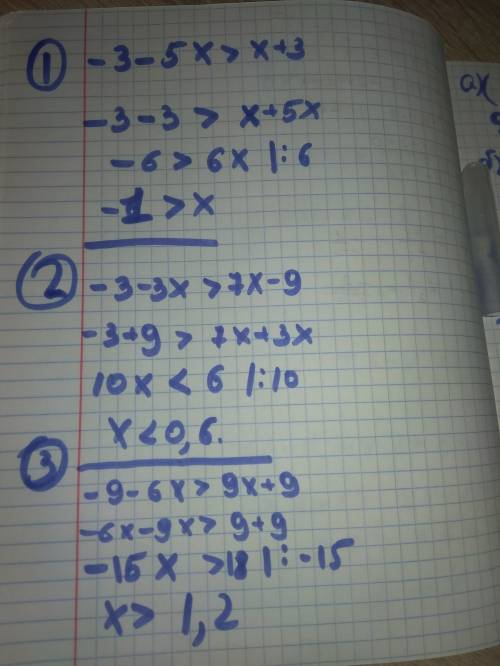 ① -3-5x>x+3
-3-3 > x+5x
-6 > 6x |:6
-1 > x
② -3-3x >7x-9
-3+9 > 7x+3x
10x < 6 |:10
x<0,6.
③ -9-6x> 9x+9
-6x-9x> 9+9
-15x >18 |:-15
x> 1,2
ax